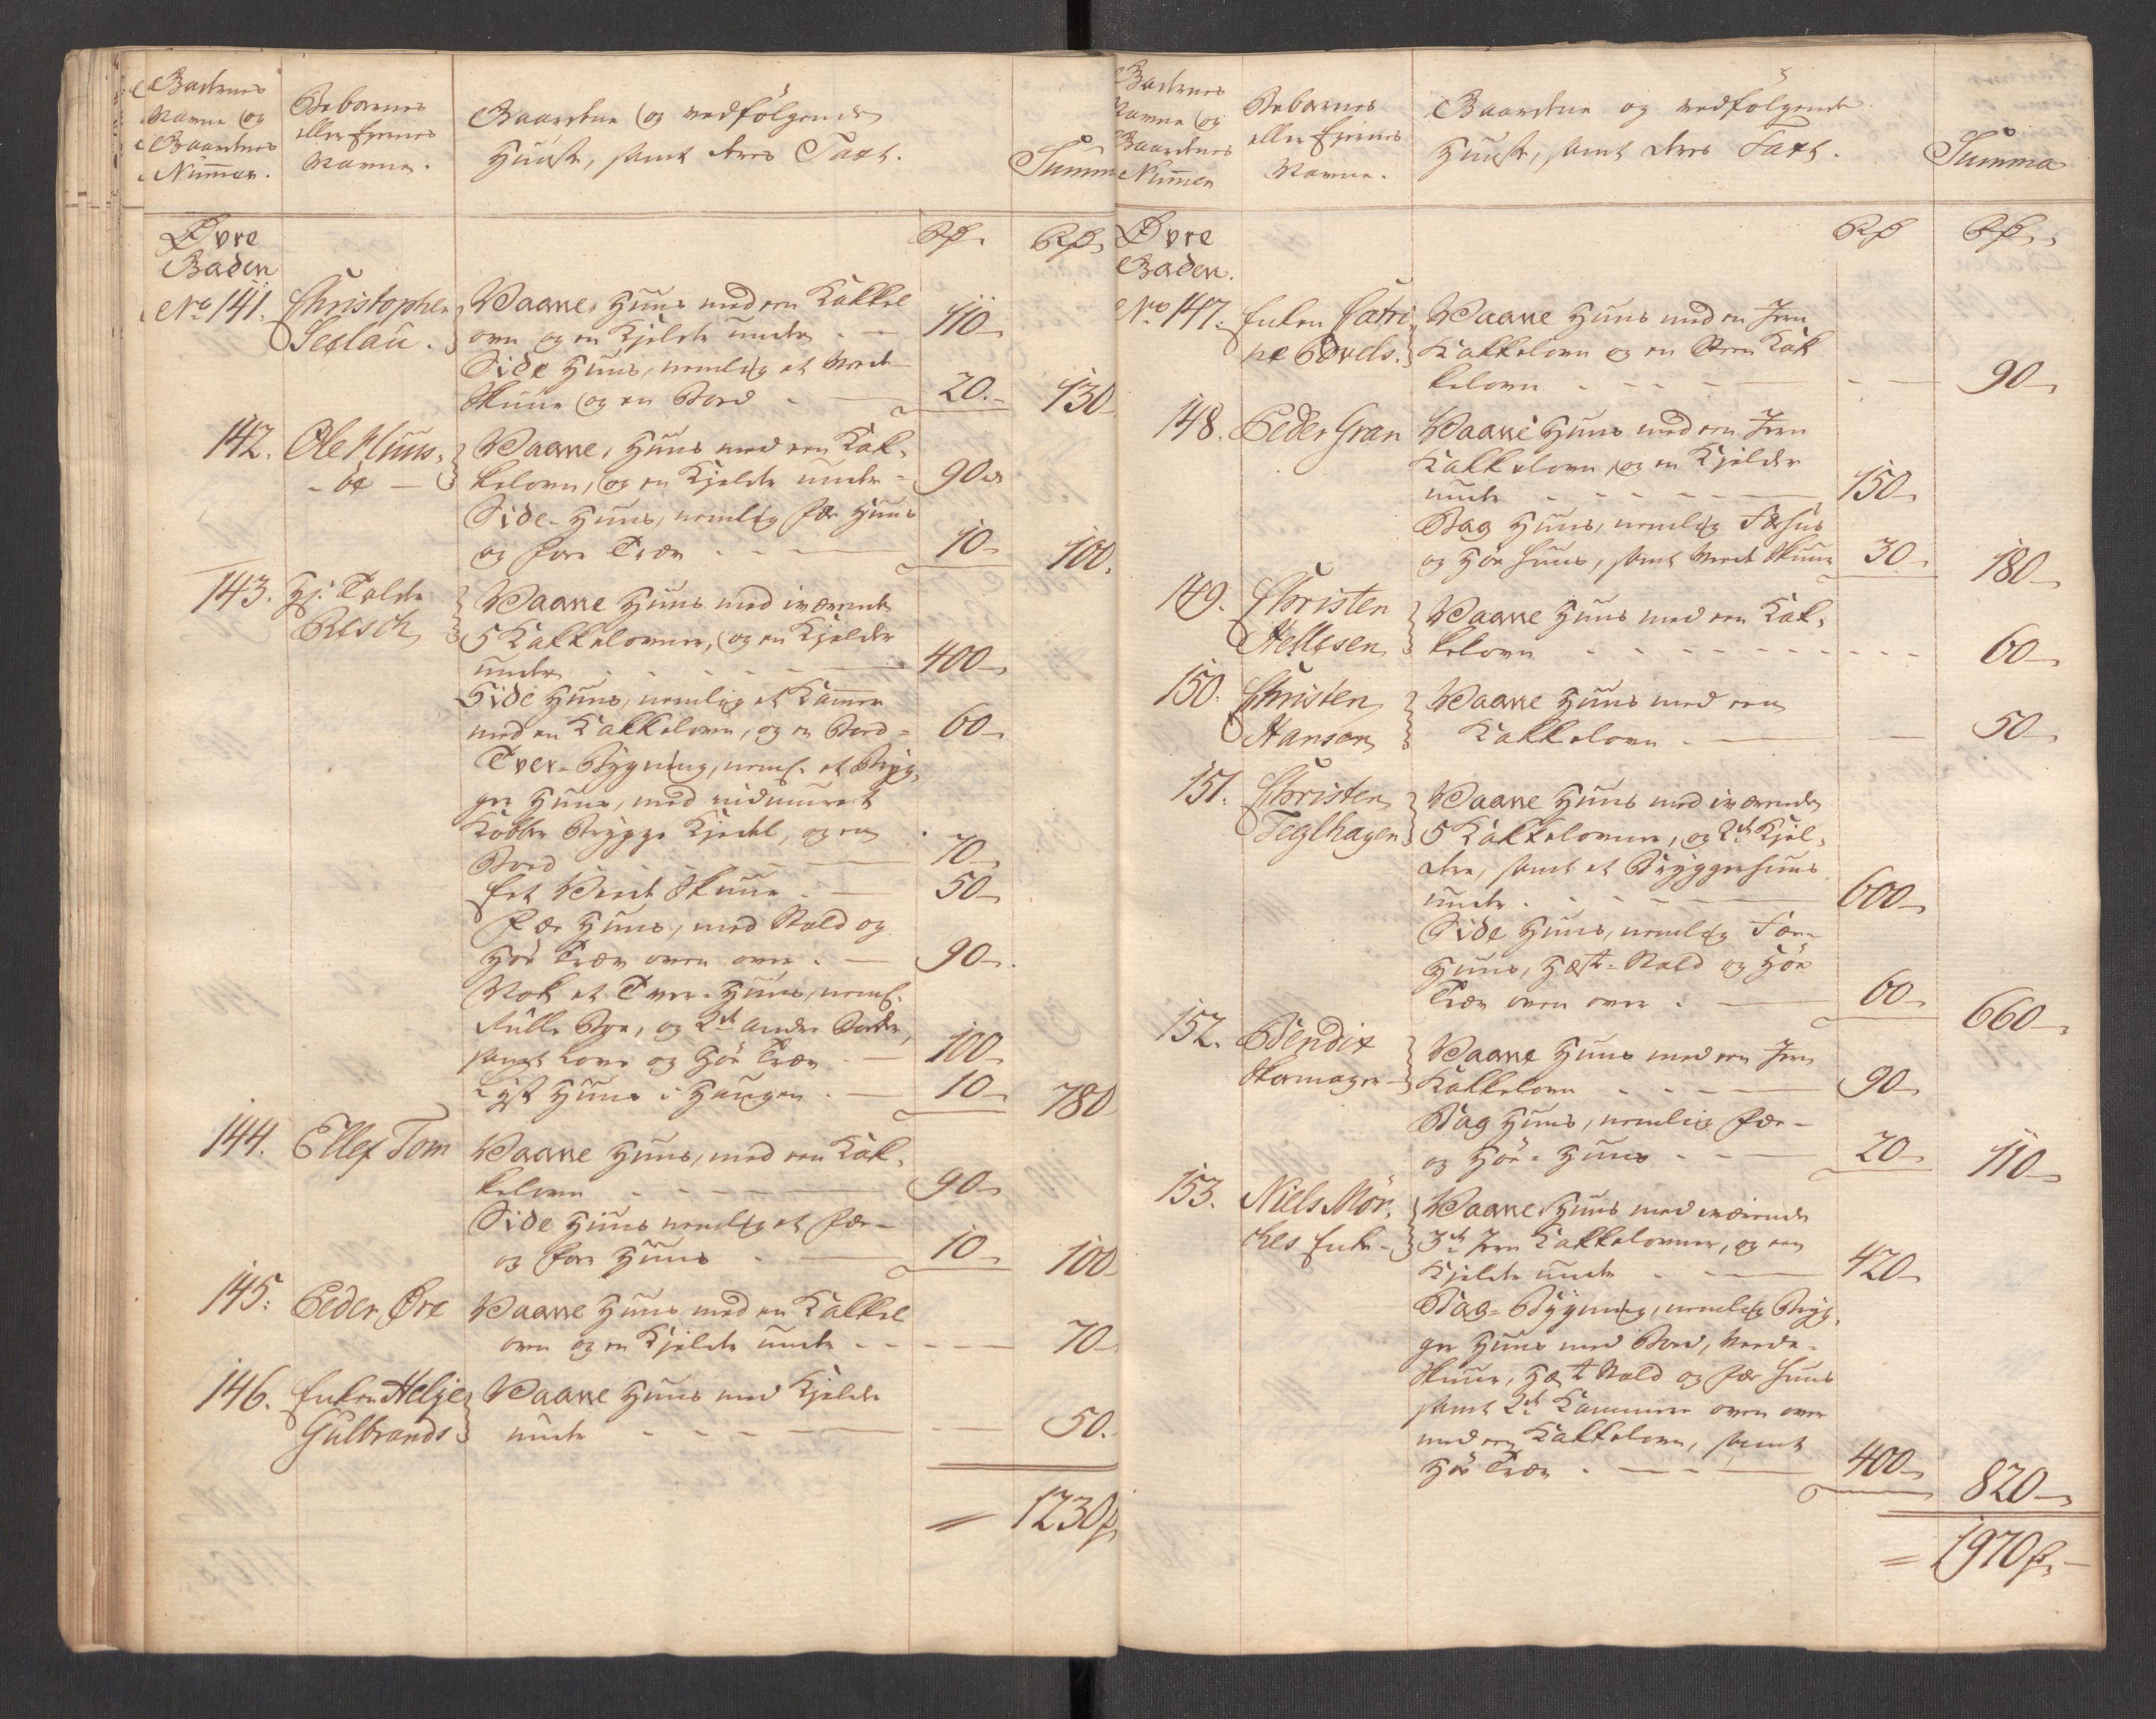 Gadernes
Navne og
Gaardenes
Nummer.
Beboernes
eller Eyernes
Navne.
Gaardene og vedfølgende
Huuse, samt deres Taxt.
Summ
Øvre
Gaden
Rd.
Rd.
No 141.
Christopher
Seglau.
Vaane Huus med een Kakkel
ovn og en Kjelder under - 110
Side Huus, nemlig et Vede
Skuur og en Boed - 20. 130
142. Ole Muus-
be
Vaane Huus med een Kak-
kelovn, og en Kjelder under - 90
Side Huus, nemlig Fæe Huus
og Foer Træv - 10 100.
143. Hr. Tolder
Resch
Vaane Huus med iværende
5 Kakkelovner, og en Kjelder
under - 400
Side Huus, nemlig et Kammer
med en Kakkelovn, og en Boed - 60
Tver-Bygning, neml. et Bryg-
ger Huus, med indmuret
Kobber Brygge Kjedel, og en
Boed - 70
Eet Vede Skuur - 50
Fæe Huus, med Stald og
Høe Træv oven over - 90
Nok et Tver-Huus, neml.
Rulle Boe, og 2de andre Boder,
samt Love og Høe Træv - 100
Lyst Huus i Haugen - 10 780
144. Ellef Tom
Vaane Huus, med een Kak-
kelovn - 90
Side Huus nemlig et Fæe-
og Foer Huus - 10 100
145. Peder Øre
Vaane Huus med en Kakkel
ovn og en Kjelder under - 70
146. Enken Helje
Gulbrands
Vaane Huus med Kjelder
under - 50.
= 1230 rd
Gadernes
Navne og
Gaardenes
Nummer
Beboernes
eller Eyernes
Navne.
Gaardene og vedfølgende
Huuse, samt deres Taxt.
Summa
Øvre
Gaden.
Rd
Rd.
No 147.
Enken Catri-
ne Povels.
Vaane Huus med en Jern
Kakkelovn og en Steen Kak
kelovn - 90
148. Peder Gran
Vaane Huus med een Jern
Kakkelovn, og en Kjelder
under - 150
Bag Huus, nemlig Fæhus
og Høe Huus, samt Vede Skuur 30 180
149. Christen
Hellesen
Vaane Huus med een Kak-
kelovn - 60
150. Christen
Hansen
Vaane Huus med een
Kakkelovn - 50
151. Christen
Teglhagen
Vaane Huus med iværende
5 Kakkelovner, og 2de Kjel-
dre, samt et Bryggerhuus
under - 600
Side Huus, nemlig Fæe-
Huus, Hæst-Stald og Høe
Træv oven over - 60 660
152. Bendix
Skomager
Vaane Huus med een Jern
Kakkelovn - 90
Bag Huus, nemlig Fæe-
og Høe-Huus - 20 110
153. Niels Mør-
ches Enke
Vaane Huus med iværende
3de Jern Kakkelovner, og een
Kjelder under - 420
Bag-Bygning, nemlig Bryg-
ger Huus med Boed, Vede-
Skuur, Hæst Stald og Fæe Huus
samt 2de Kammere oven over
med een Kakkelovn, samt
Høe Træv - 400 820
= 1970 rd